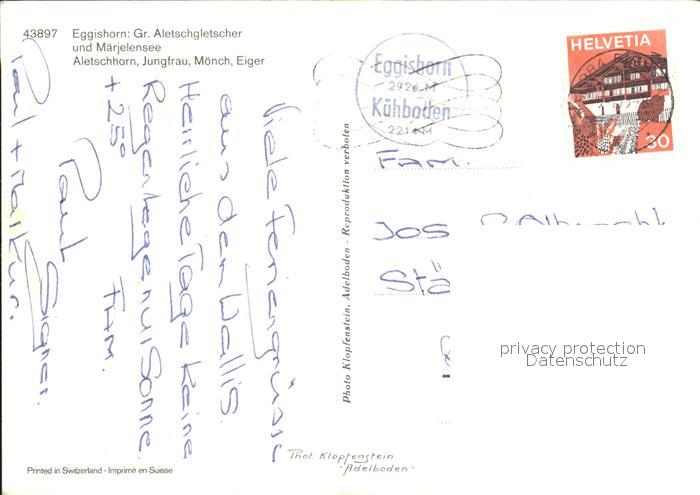 43897 Eggishorn: Gr. Aletschgletscher
und Märjelensee
Aletschhorn, Jungfrau, Mönch, Eiger
Viele Feriengrüsse
aus dem Wallis.
Herrliche Tage keine
Regentage nur Sonne
+ 25°
Fam.
Paul Signer
Paul +
Eggishorn
2926 M
Kühboden
2214 M
HELVETIA
30
Fam.
Jos
Stä
privacy protection
Datenschutz
Photo Klopfenstein, Adelboden - Reproduktion verboten
Phot. Klopfenstein
- Adelboden -
Printed in Switzerland - Imprimé en Suisse